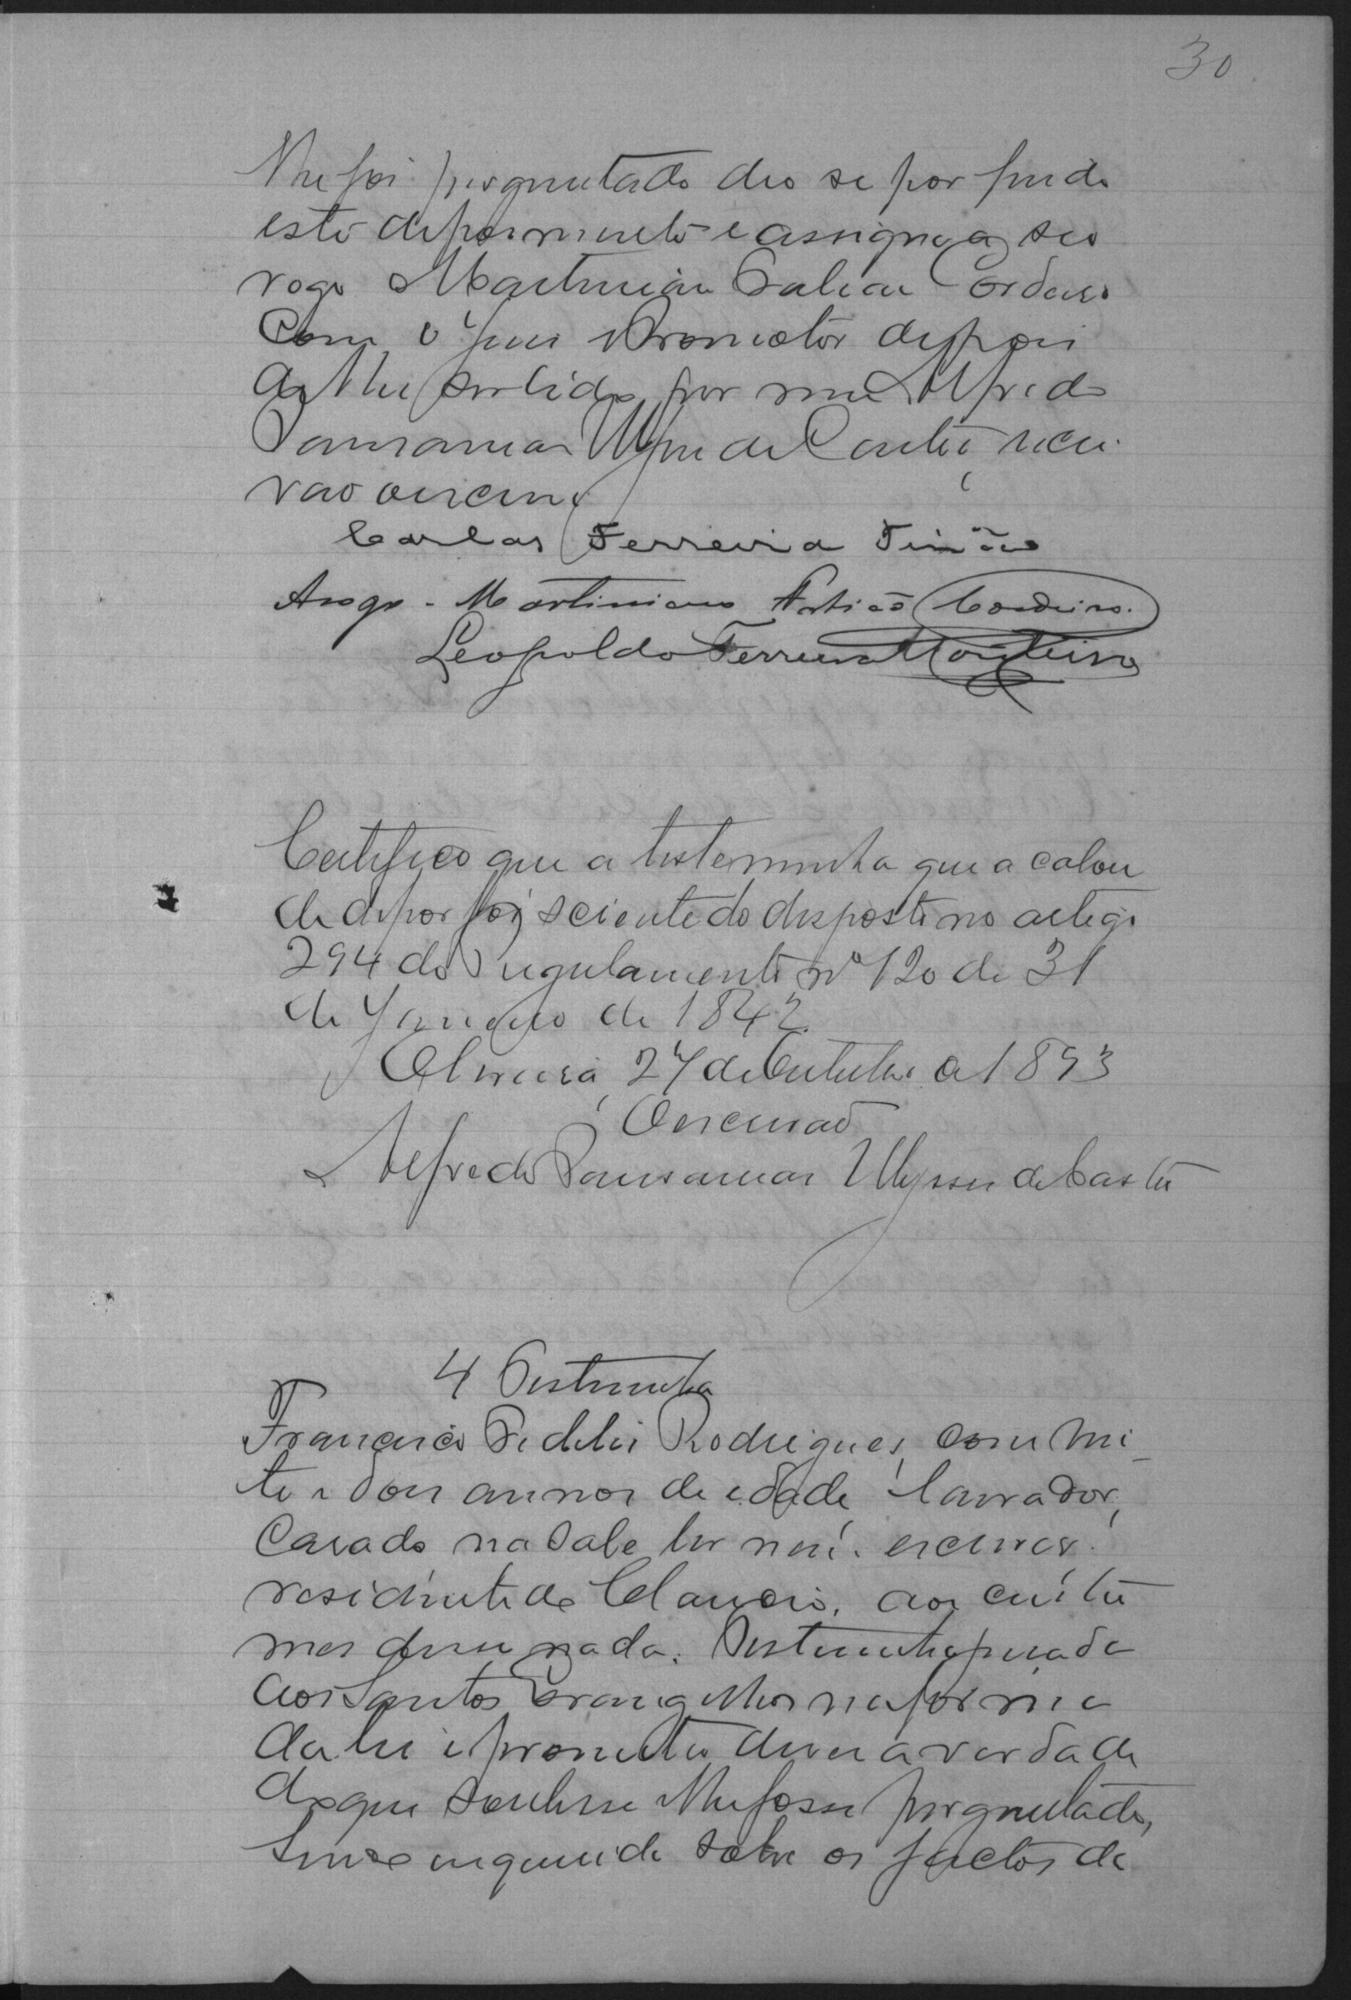 30
lhe foi perguntado deo se por findo
este depoimento e assigna a seo
rogo Martiniano Cordeiro
com o juiz e Promotor depois
de lhe ser lido por mim Alfredo
Pansanias Ulysses de Castro, escri-
vão o escrevi.
Carlos Ferreira Tinôco
Arogo - Martiniano Cordeiro.
Leopoldo Ferreira Monteiro
Certifico que a testemunha que acabou
de depor foi sciente do disposto no artigo
294 do regulamento nº 120 de 31
de Janeiro de 1842.
Oliveira, 27 de Outubro de 1893
O escrivão
Alfredo Pansanias Ulysses de Castro
4 Testemunha
Francisco Fidelis Rodrigues, com vin-
te e dois annos de edade, lavrador,
casado, não sabe ler nem escrever,
residente de Claudio, aos costu
mes disse nada. Testemunha jurada
aos Santos Evangelhos na forma
da lei e prometteu dizer a verdade
do que soubesse e lhe fosse perguntado,
sendo inquerido sobre os factos da